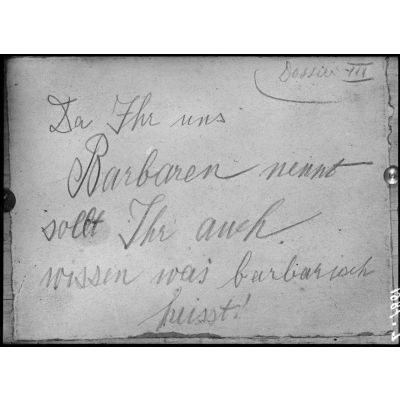 Dossier III
Da Ihr uns
Barbaren nennt
sollt Ihr auch
wissen was barbarisch
heisst!